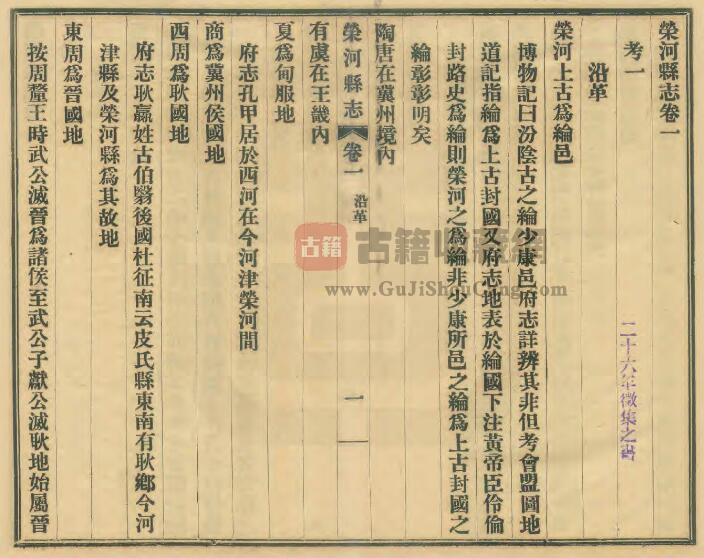 榮河縣志卷一
考一
沿革
榮河上古爲綸邑
博物記曰汾陰古之綸少康邑府志詳辨其非但考會盟圖地
道記指綸爲上古封國又府志地表於綸國下注黃帝臣伶倫
封路史爲綸則榮河之爲綸非少康所邑之綸爲上古封國之
綸彰彰明矣
陶唐在冀州境內
榮河縣志 卷一 沿革 一
有虞在王畿內
夏爲甸服地
府志孔甲居於西河在今河津榮河間
商爲冀州侯國地
西周爲耿國地
府志耿嬴姓古伯翳後國杜征南云皮氏縣東南有耿鄉今河
津縣及榮河縣爲其故地
東周爲晉國地
按周釐王時武公滅晉爲諸侯至武公子獻公滅耿地始屬晉
二十六年徵集之書
古籍
古籍收藏網
www.GuJiShouCang.com